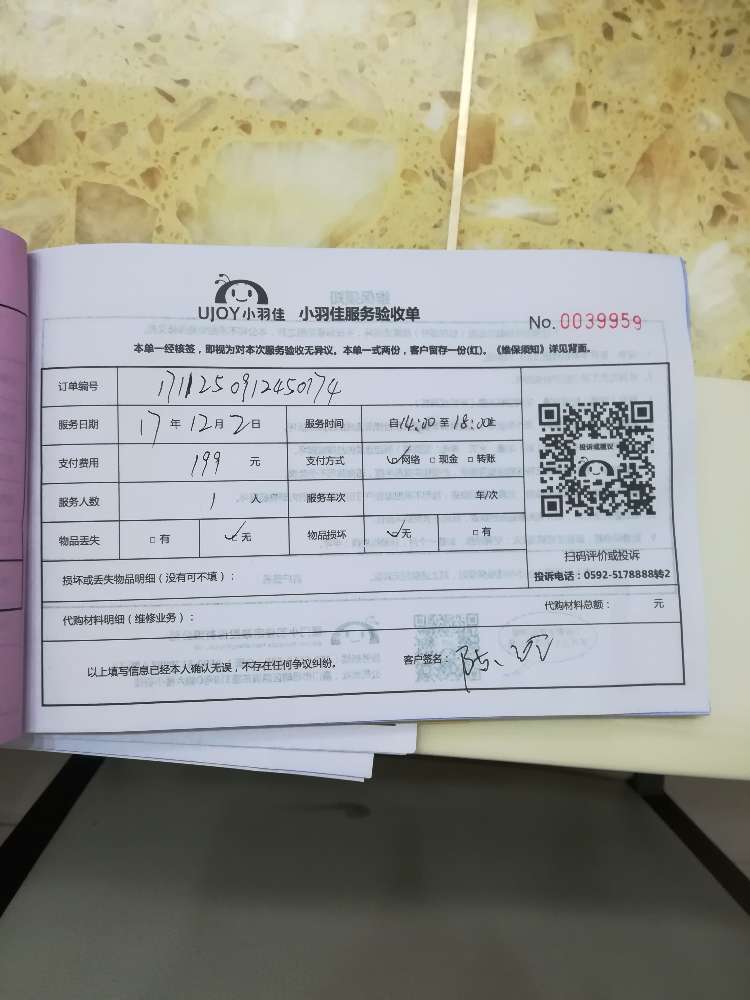 UJOY小羽佳 小羽佳服务验收单
No. 0039959
本单一经核签，即视为对本次服务验收无异议。本单一式两份，客户留存一份(红)。《维保须知》详见背面。
订单编号 1711250912450174
服务日期 17年12月2日 服务时间 自14:00至18:00止
支付费用 199 元 支付方式 ☑网络 □现金 □转账
服务人数 1 人 服务车次 车/次
物品丢失 □有 ☑无 物品损坏 ☑无 □有
投诉或建议
扫码评价或投诉
投诉电话：0592-5178888转2
损坏或丢失物品明细（没有可不填）：
代购材料明细（维修业务）： 代购材料总额： 元
以上填写信息已经本人确认无误，不存在任何争议纠纷。 客户签名：